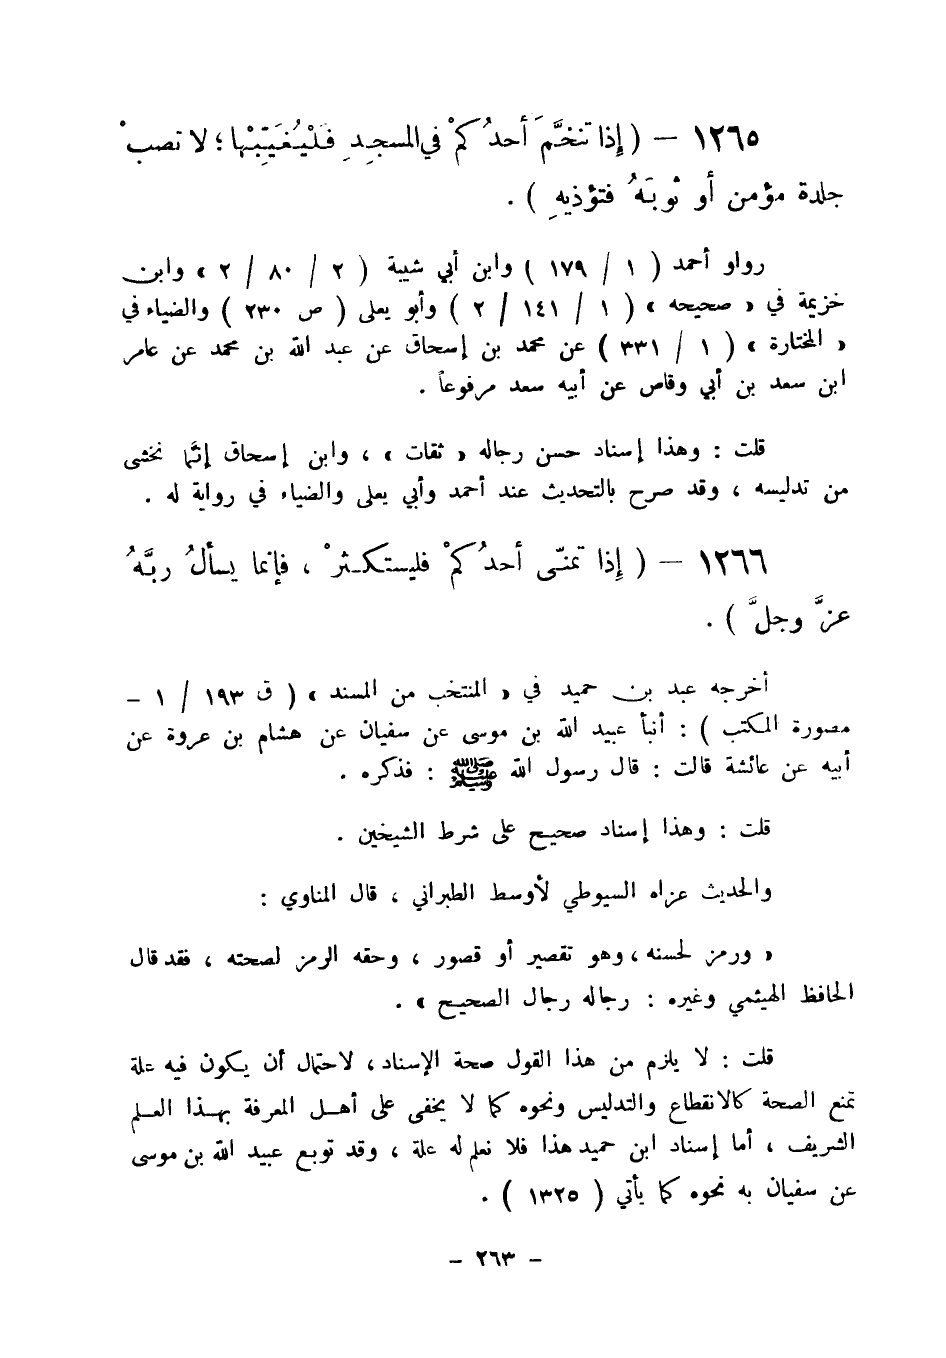 ١٢٦٥ – ( إذا تنخَّمَ أحدُكمْ في المسجدِ فَلْيُغَيِّبْها ؛ لا تصبْ
جلدة مؤمن أو ثوبَهُ فتؤذيهِ ) .
رواو أحمد ( ١ / ١٧٩ ) وابن أبي شيبة ( ٢ / ٨٠ / ٢ » وابن
خزيمة في « صحيحه » ( ١ / ١٤١ / ٢ ) وأبو يعلى ( ص ٢٣٠ ) والضياء في
« المختارة » ( ١ / ٣٣١ ) عن محمد بن إسحاق عن عبد الله بن محمد عن عامر
ابن سعد بن أبي وقاص عن أبيه سعد مرفوعاً .
قلت : وهذا إسناد حسن رجاله « ثقات » ، وابن إسحاق إنَّما نخشى
من تدليسه ، وقد صرح بالتحديث عند أحمد وأبي يعلى والضياء في رواية له .
١٢٦٦ – ( إذا تمنّى أحدُكمْ فليستكثرْ ، فإنما يسألُ ربَّهُ
عزَّ وجلَّ ) .
أخرجه عبد بن حميد في « المنتخب من المسند » ( ق ١٩٣ / ١ –
مصورة المكتب ) : أنبأ عبيد الله بن موسى عن سفيان عن هشام بن عروة عن
أبيه عن عائشة قالت : قال رسول الله ﷺ : فذكره .
قلت : وهذا إسناد صحيح على شرط الشيخين .
والحديث عزاه السيوطي لأوسط الطبراني ، قال المناوي :
« ورمز لحسنه ، وهو تقصير أو قصور ، وحقه الرمز لصحته ، فقد قال
الحافظ الهيثمي وغيره : رجاله رجال الصحيح » .
قلت : لا يلزم من هذا القول صحة الإسناد ، لاحتمال أن يكون فيه علة
تمنع الصحة كالانقطاع والتدليس ونحوه كما لا يخفى على أهل المعرفة بهذا العلم
الشريف ، أما إسناد ابن حميد هذا فلا نعلم له علة ، وقد توبع عبيد الله بن موسى
عن سفيان به نحوه كما يأتي ( ١٣٢٥ ) .
– ٢٦٣ –